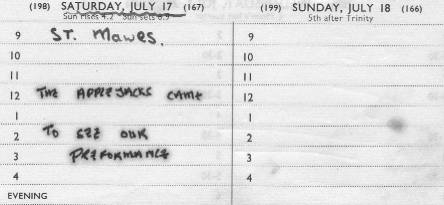 (198) SATURDAY, JULY 17 (167)
Sun rises 4.2 Sun sets 8.9
9 ST. Mawes.
10
11
12 THE APPLEJACKS CAME
1
2 TO SEE OUR
3 PREFORMANCE
4
EVENING
(199) SUNDAY, JULY 18 (166)
5th after Trinity
9
10
11
12
1
2
3
4